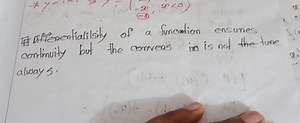 Differentiability of a function ensures
continuity but the convers in is not the tune
always.